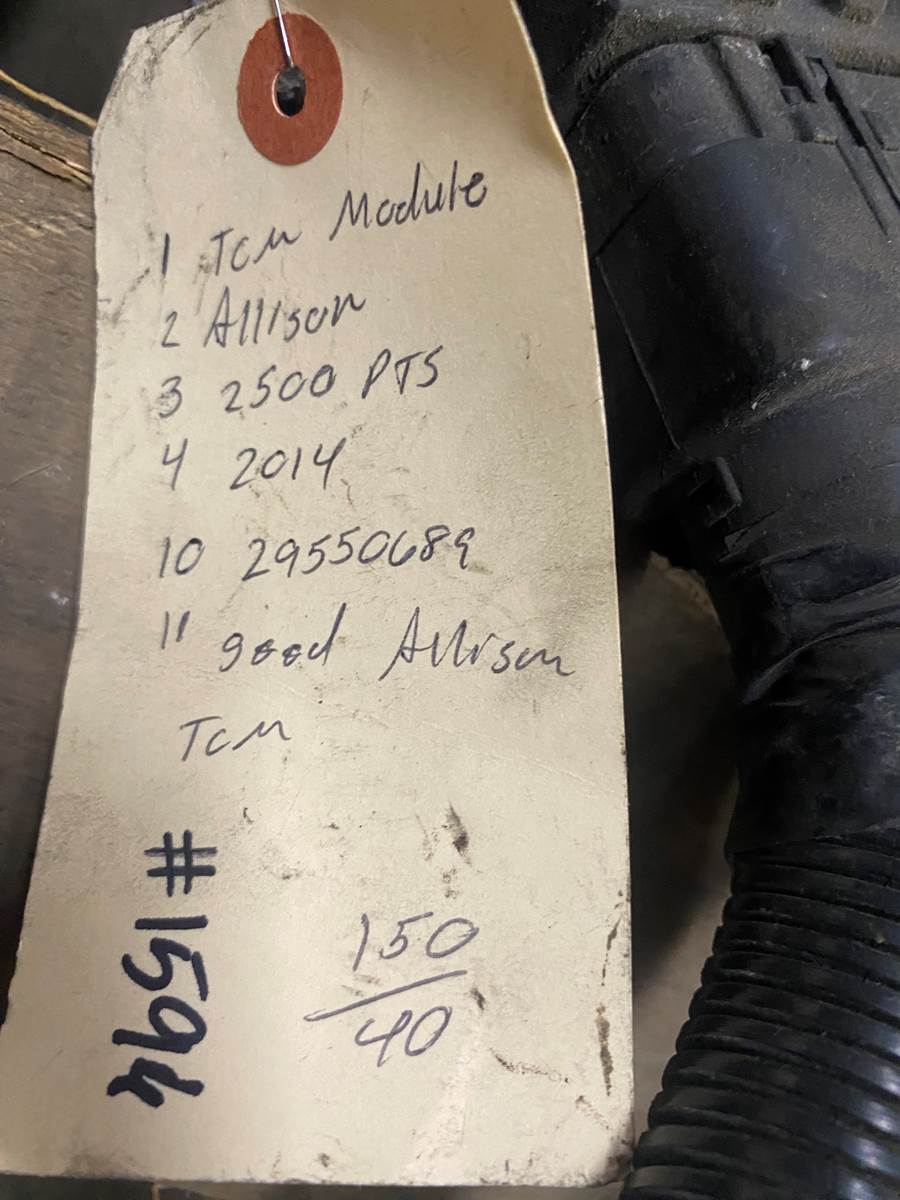 1 TCM Module
2 Allison
3 2500 PTS
4 2014
10 29550689
11 good Allison
TCM
#1594
150
40